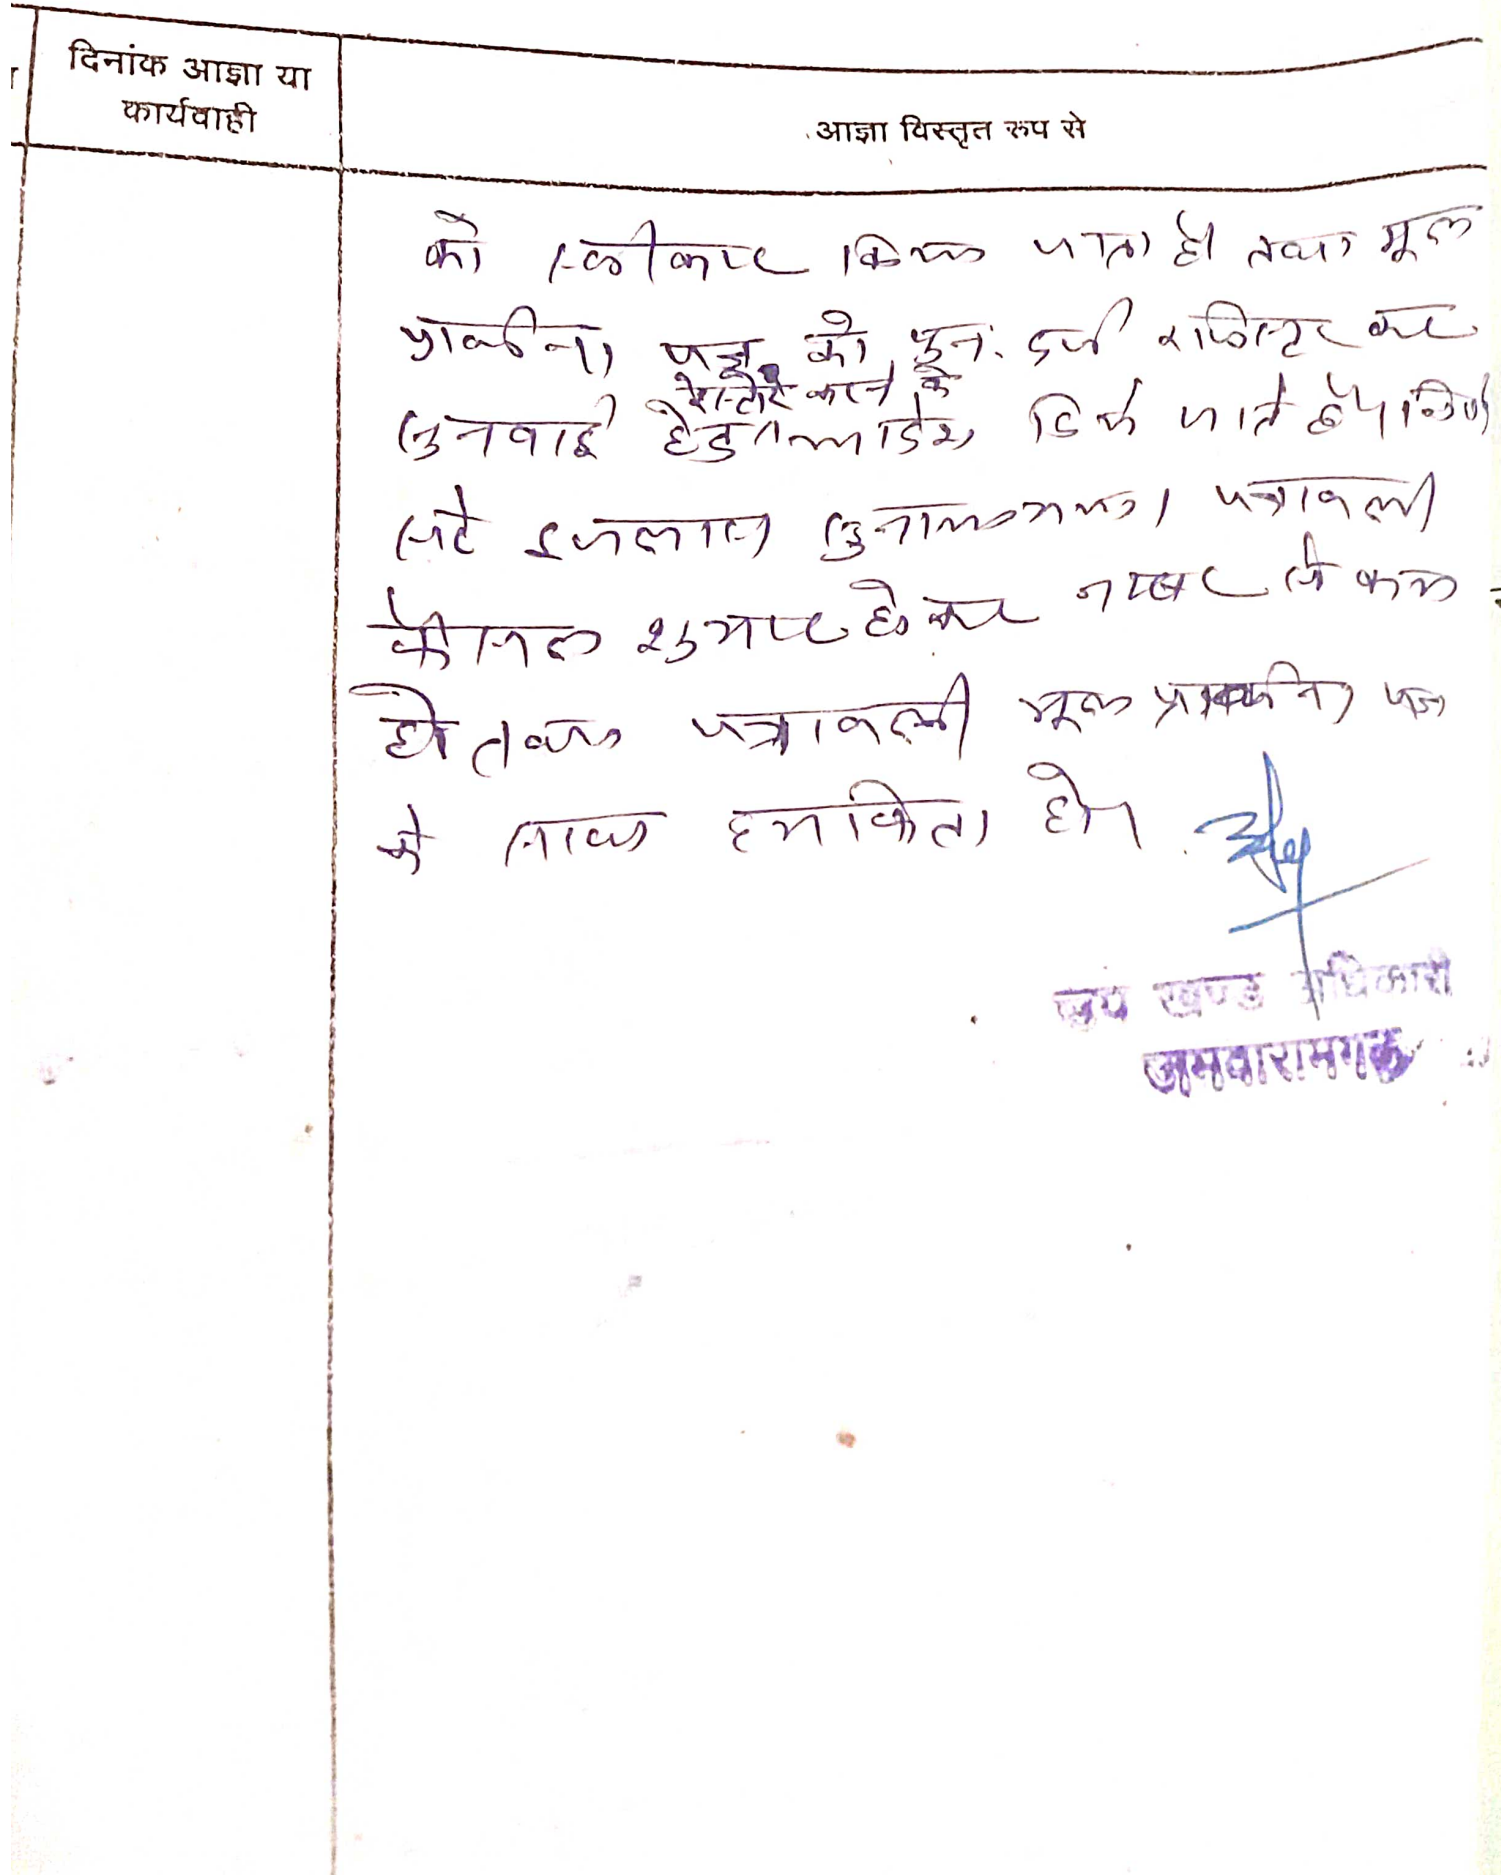 दिनांक आज्ञा या
कार्यवाही
आज्ञा विस्तृत रूप से
को स्वीकार किया जाता है तथा मूल
प्रार्थना पत्र को पुनः दर्ज रजिस्टर कर
रेस्टोर करने के
सुनवाई हेतु आदेश दिये जाते हैं। निर्णय
सरे इजलास सुनाया गया। पत्रावली
फैसल शुमार होकर नम्बर से कम
हो तथा पत्रावली मूल प्रार्थना पत्र
के साथ हमकिता हो।
उप खण्ड अधिकारी
जमवारामगढ़